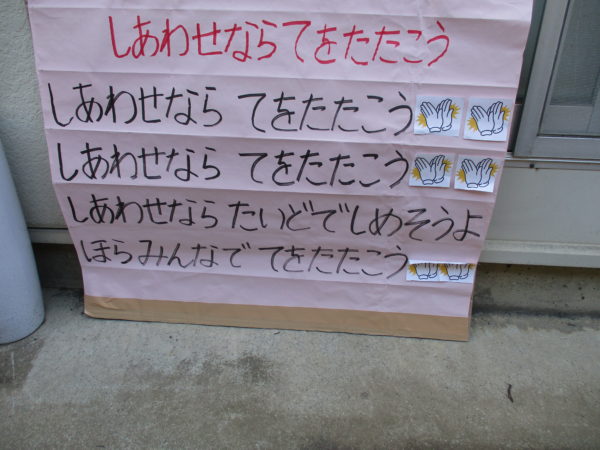 しあわせならてをたたこう
しあわせなら てをたたこう
しあわせなら てをたたこう
しあわせなら たいどでしめそうよ
ほら みんなで てをたたこう